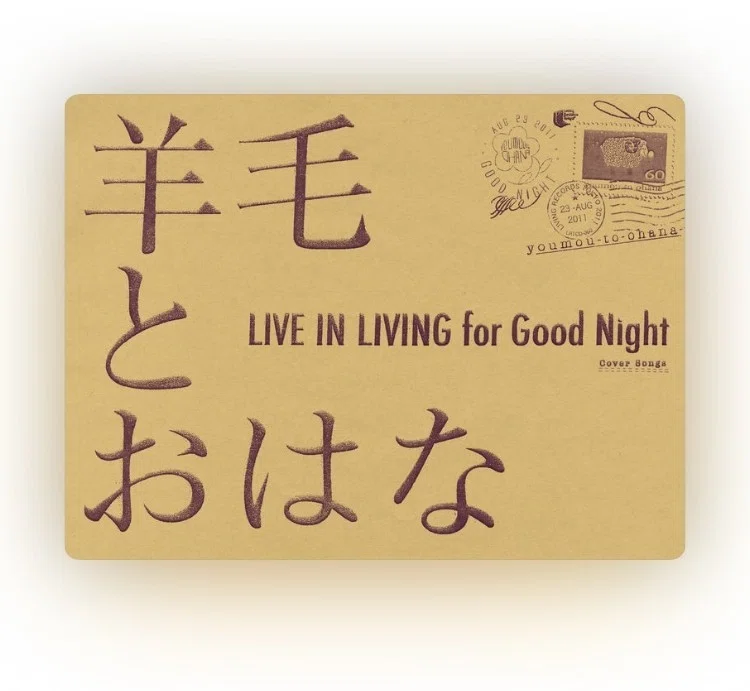 羊毛
と
おはな
LIVE IN LIVING for Good Night
Cover Songs
AUG 23 2011
YOUMOU
OHANA
GOOD NIGHT
60
youmou-to-ohana
23-AUG
2011
youmou-to-ohana-